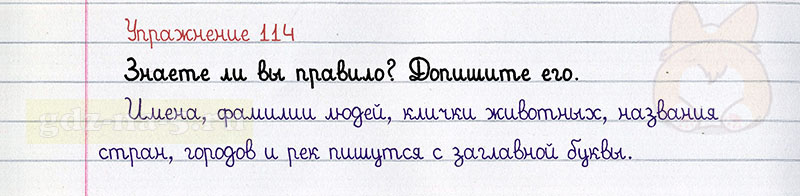 Упражнение 114
Знаете ли вы правило? Допишите его.
Имена, фамилии людей, клички животных, названия
стран, городов и рек пишутся с заглавной буквы.